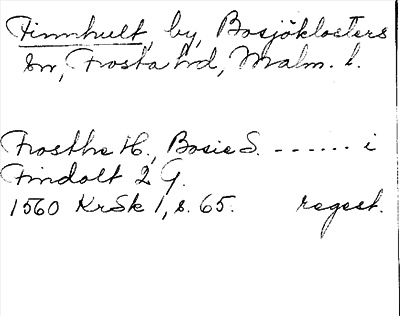 Finnhult, by, Bosjöklosters
sn, Frosta hd, Malm. l.
Frosthe H., Bosie S. ------ i
Findalt 2 G.
1560 KrSk 1, s. 65. regest.